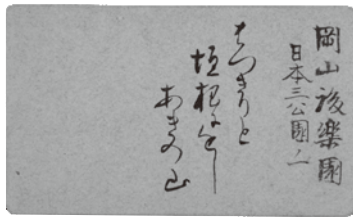 岡山後樂園
日本三公園ノ一
はつきりと
垣根
あきの山